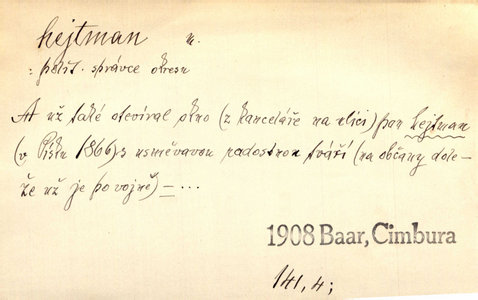 hejtman m.
: polit. správce okresu
A už také otevíral okno (z kanceláře na ulici) pan hejtman
(v Písku 1866) s usměvavou radostnou tváří (na občany dole-
že už je po vojně) – ...
1908 Baar, Cimbura
141, 4;